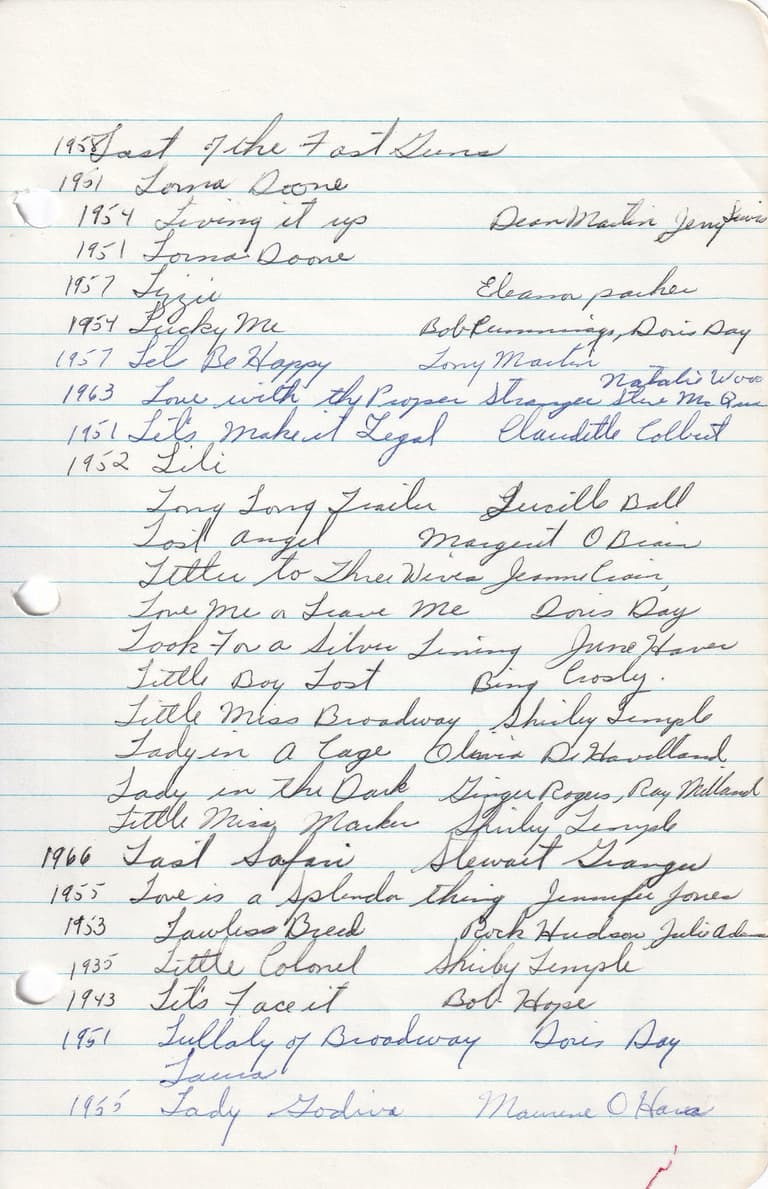 1958 Last of the Fast Guns
1951 Lorna Doone
1954 Living it up Dean Martin Jerry Lewis
1951 Lorna Doone
1957 Lizzie Eleanor parker
1954 Lucky Me Bob Cummings, Doris Day
1957 Let's Be Happy Tony Martin
1963 Love with the Proper Stranger Natalie Woo Steve Mc Quee
1951 Let's Make it Legal Claudette Colbert
1952 Lili
Long Long Trailer Lucille Ball
Lost Angel Margerit O Brain
Letter to Three Wives Jeanne Crain,
Love Me or Leave Me Doris Day
Look For a Silver Lining June Haver
Little Boy Lost Bing Crosby.
Little Miss Broadway Shirley Temple
Lady in A Cage Olivia De Havilland
Lady in the Dark Ginger Rogers, Ray Milland
Little Miss Marker Shirley Temple
1966 Last Safari Stewart Granger
1955 Love is a Splendor thing Jennifer Jones
1953 Lawless Breed Rock Hudson Julie Adams
1935 Little Colonel Shirley Temple
1943 Let's Face it Bob Hope
1951 Lullaby of Broadway Doris Day
Laura
1955 Lady Godiva Maurene O Hara